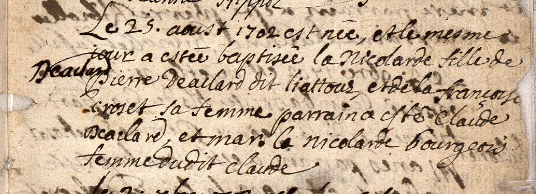 Le 25. aoust 1702 est née, et le mesme
jour a estée baptisée la Nicolarde fille de
Deaclard
Pierre Deaclard dit et de la françoise
croset sa femme parrain a esté Claude
Deaclard, et mar. la nicolarde bourgeois
femme dudit Claude